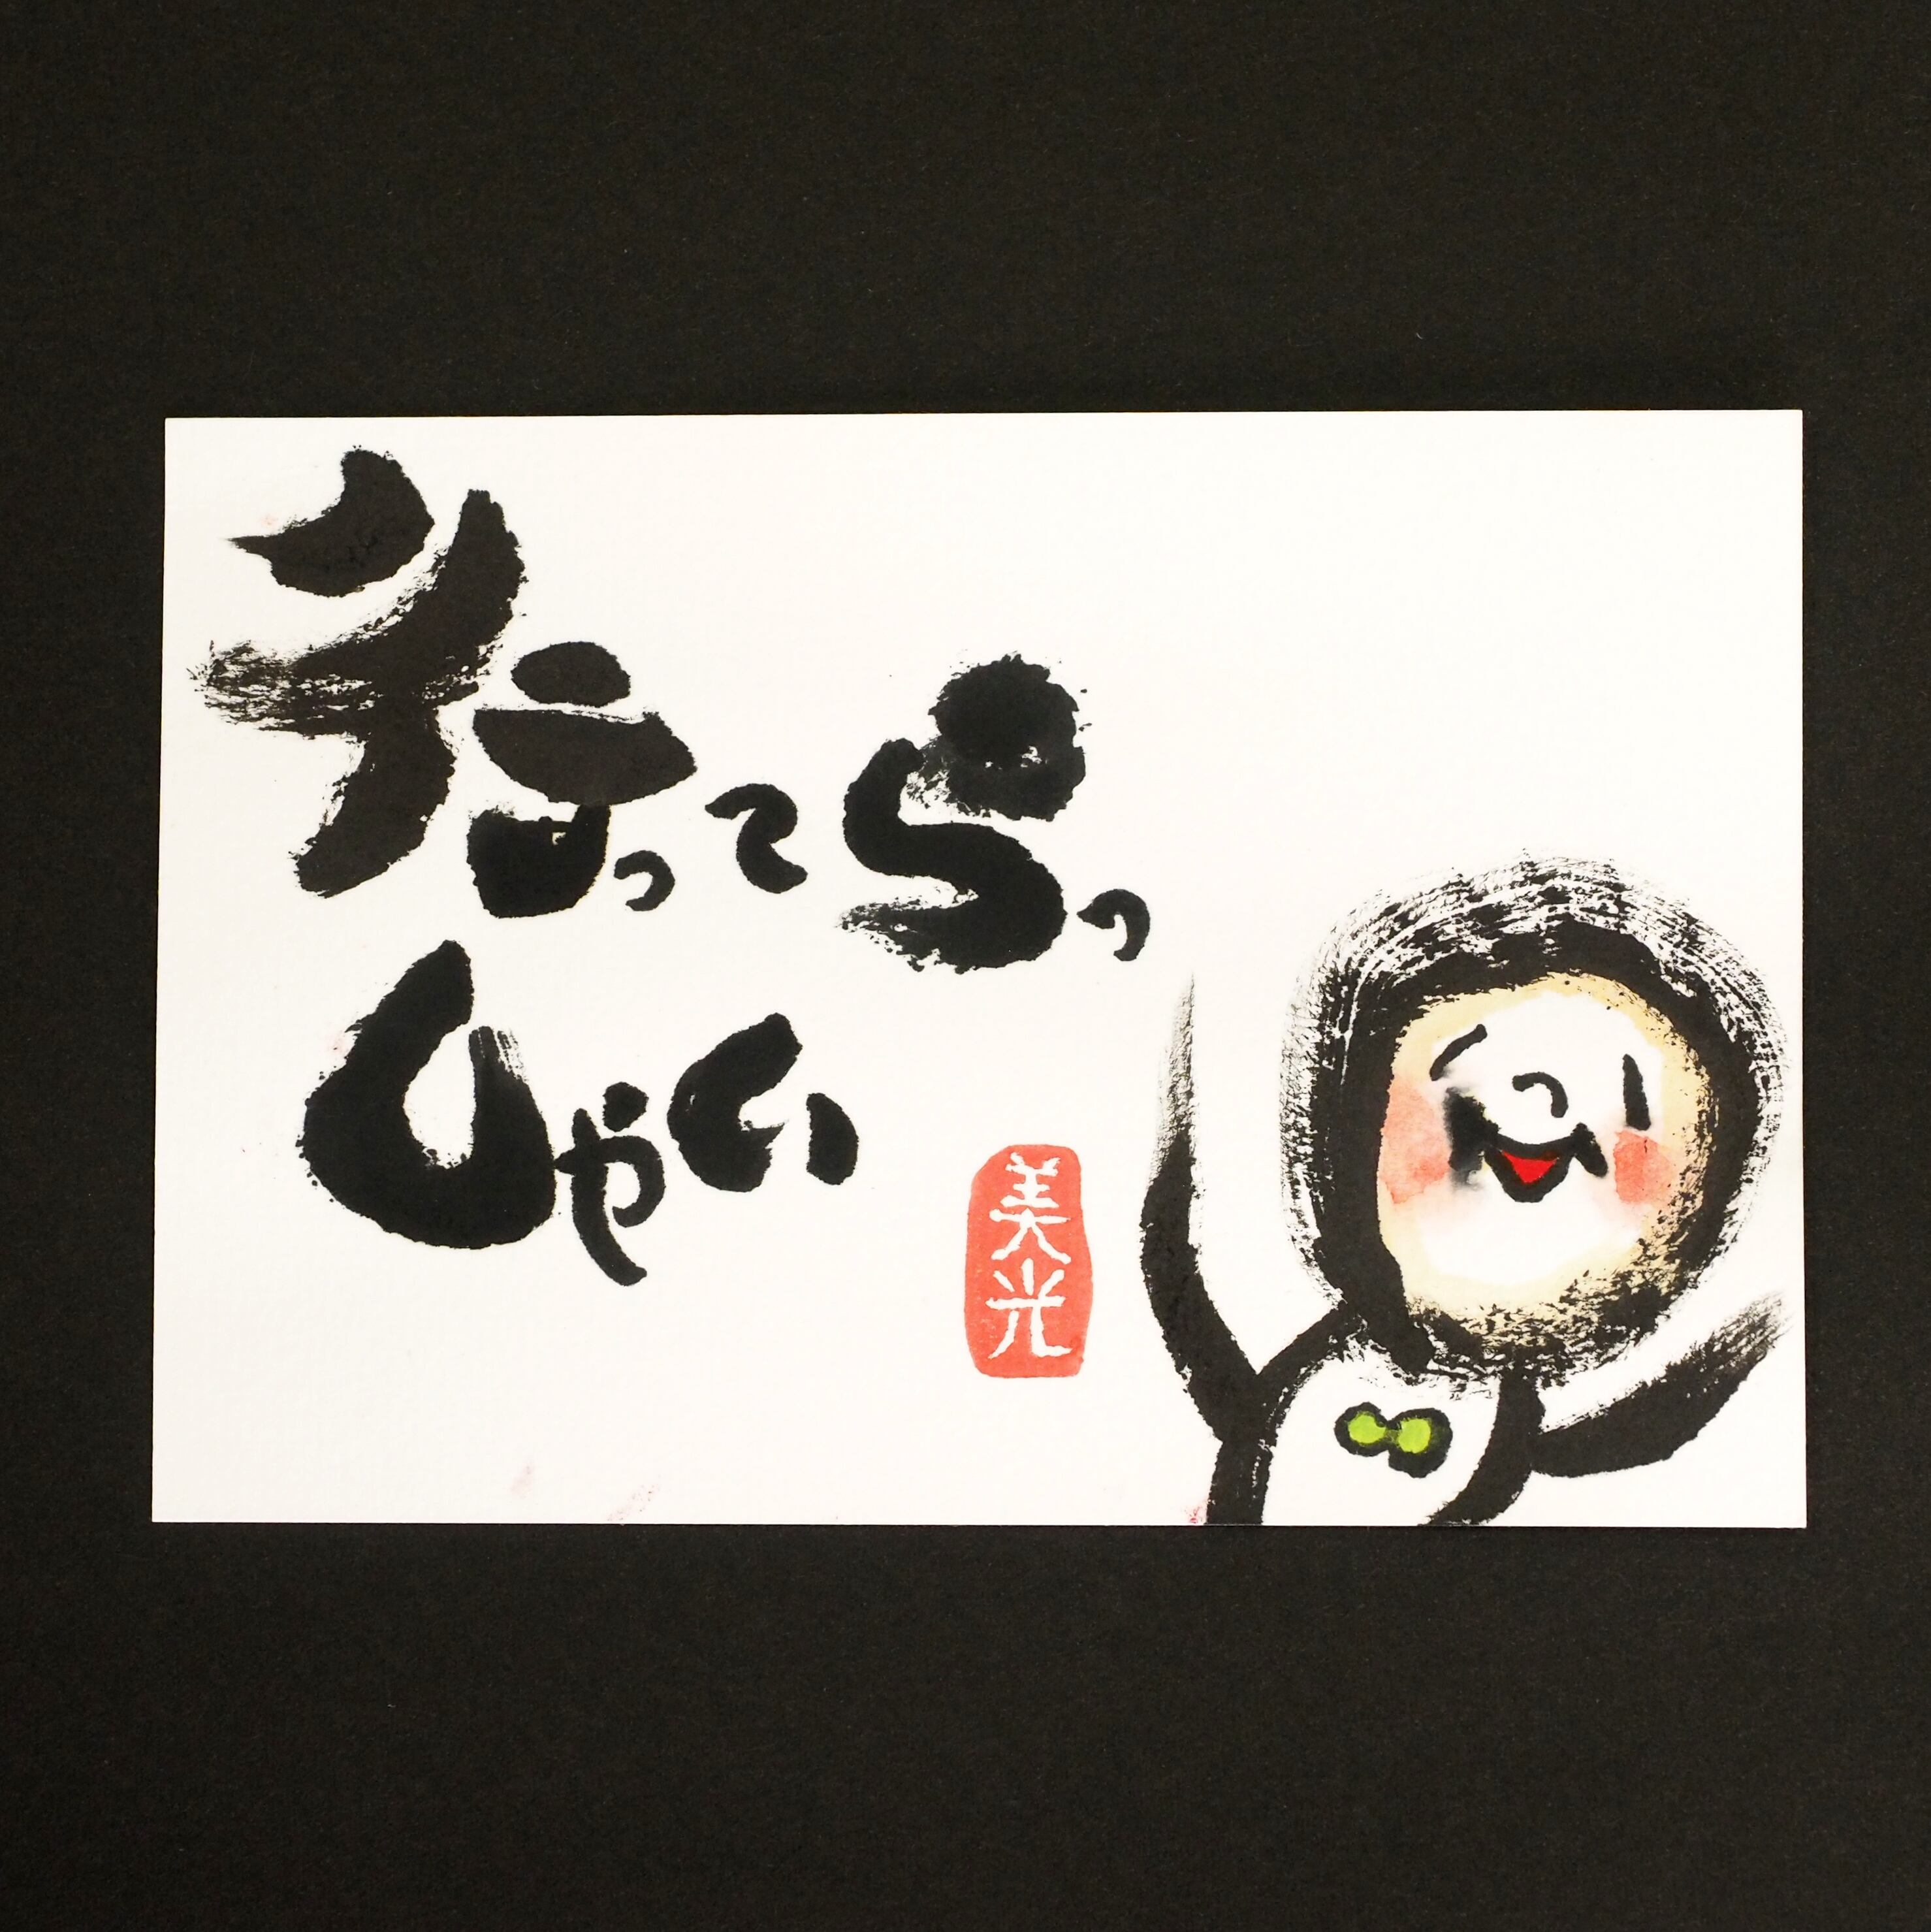 行ってらっ
しゃい
美光